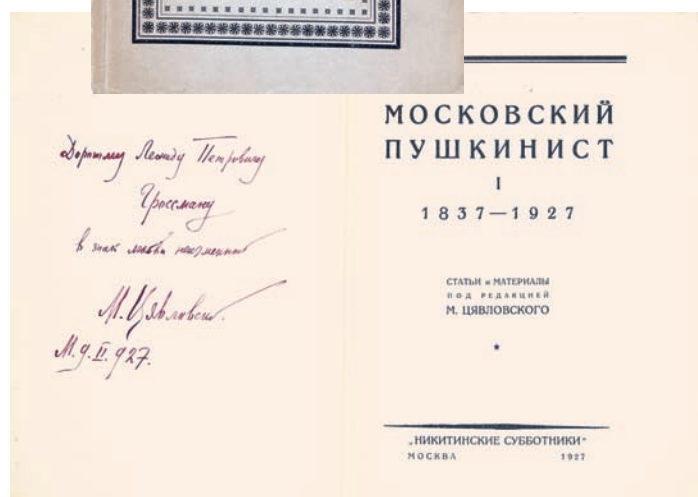 Дорогому Леониду Петровичу
Гроссману
в знак любви неизменной
М. Цявловский.
М. 9. II. 927.
МОСКОВСКИЙ
ПУШКИНИСТ
I
1837—1927
СТАТЬИ и МАТЕРИАЛЫ
ПОД РЕДАКЦИЕЙ
М. ЦЯВЛОВСКОГО
„НИКИТИНСКИЕ СУББОТНИКИ“
МОСКВА 1927